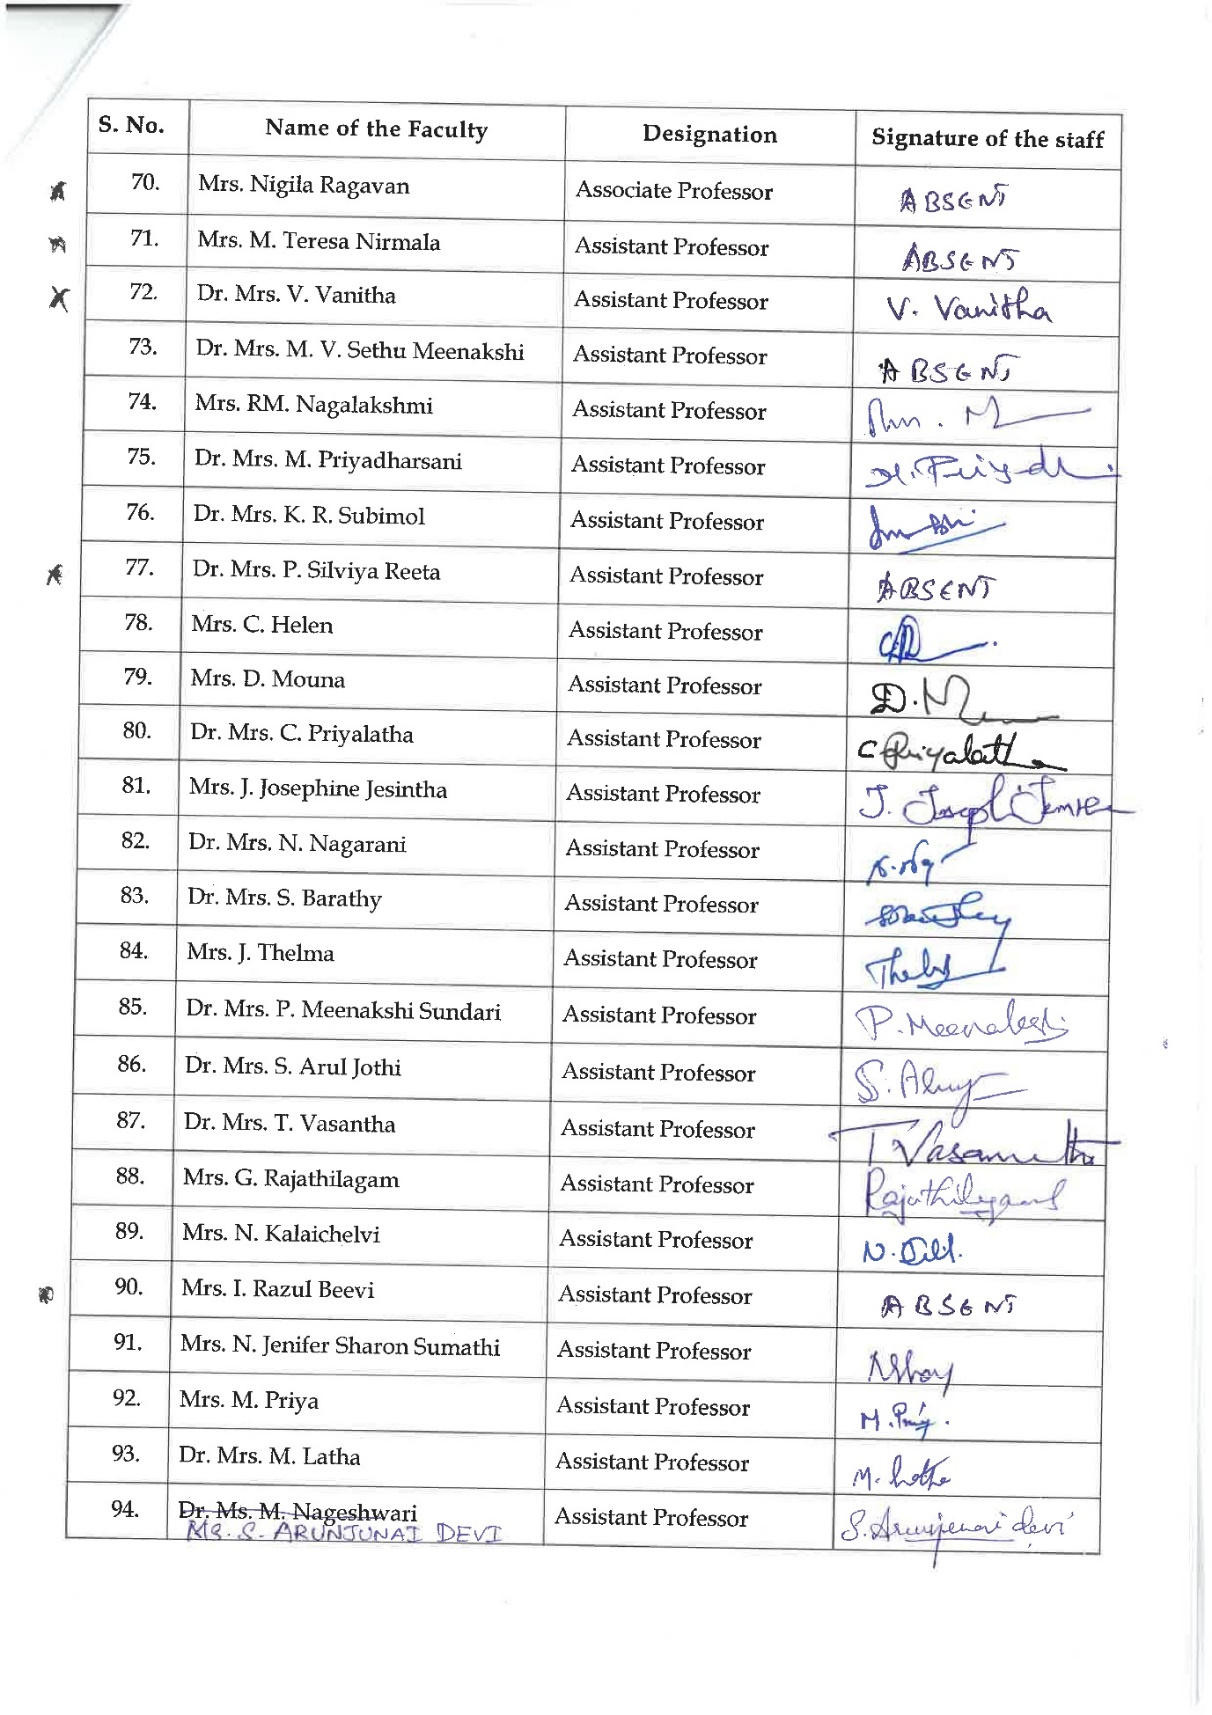 S. No. Name of the Faculty Designation Signature of the staff
70. Mrs. Nigila Ragavan Associate Professor ABSENT
71. Mrs. M. Teresa Nirmala Assistant Professor ABSENT
72. Dr. Mrs. V. Vanitha Assistant Professor V. Vanitha
73. Dr. Mrs. M. V. Sethu Meenakshi Assistant Professor ABSENT
74. Mrs. RM. Nagalakshmi Assistant Professor
75. Dr. Mrs. M. Priyadharsani Assistant Professor
76. Dr. Mrs. K. R. Subimol Assistant Professor
77. Dr. Mrs. P. Silviya Reeta Assistant Professor ABSENT
78. Mrs. C. Helen Assistant Professor
79. Mrs. D. Mouna Assistant Professor
80. Dr. Mrs. C. Priyalatha Assistant Professor C Priyalatha
81. Mrs. J. Josephine Jesintha Assistant Professor
82. Dr. Mrs. N. Nagarani Assistant Professor
83. Dr. Mrs. S. Barathy Assistant Professor
84. Mrs. J. Thelma Assistant Professor
85. Dr. Mrs. P. Meenakshi Sundari Assistant Professor P. Meenakshi
86. Dr. Mrs. S. Arul Jothi Assistant Professor
87. Dr. Mrs. T. Vasantha Assistant Professor T Vasantha
88. Mrs. G. Rajathilagam Assistant Professor Rajathilagam
89. Mrs. N. Kalaichelvi Assistant Professor
90. Mrs. I. Razul Beevi Assistant Professor ABSENT
91. Mrs. N. Jenifer Sharon Sumathi Assistant Professor
92. Mrs. M. Priya Assistant Professor M. Priya
93. Dr. Mrs. M. Latha Assistant Professor M. Latha
94. Dr. Ms. M. Nageshwari Assistant Professor S. Arunjunai devi
MS. S. ARUNJUNAI DEVI